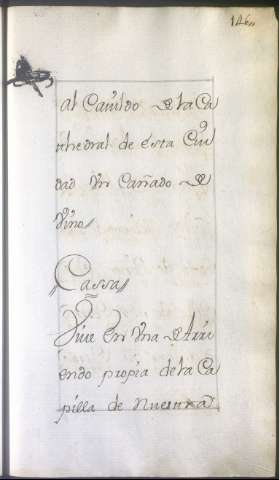 146
al Cavildo de la Ca
thedral de esta Ciu
dad Un Cañado de
Vino//
Cassa//
Vive en Una de Arri
endo propia de la Ca
pilla de Nuestra